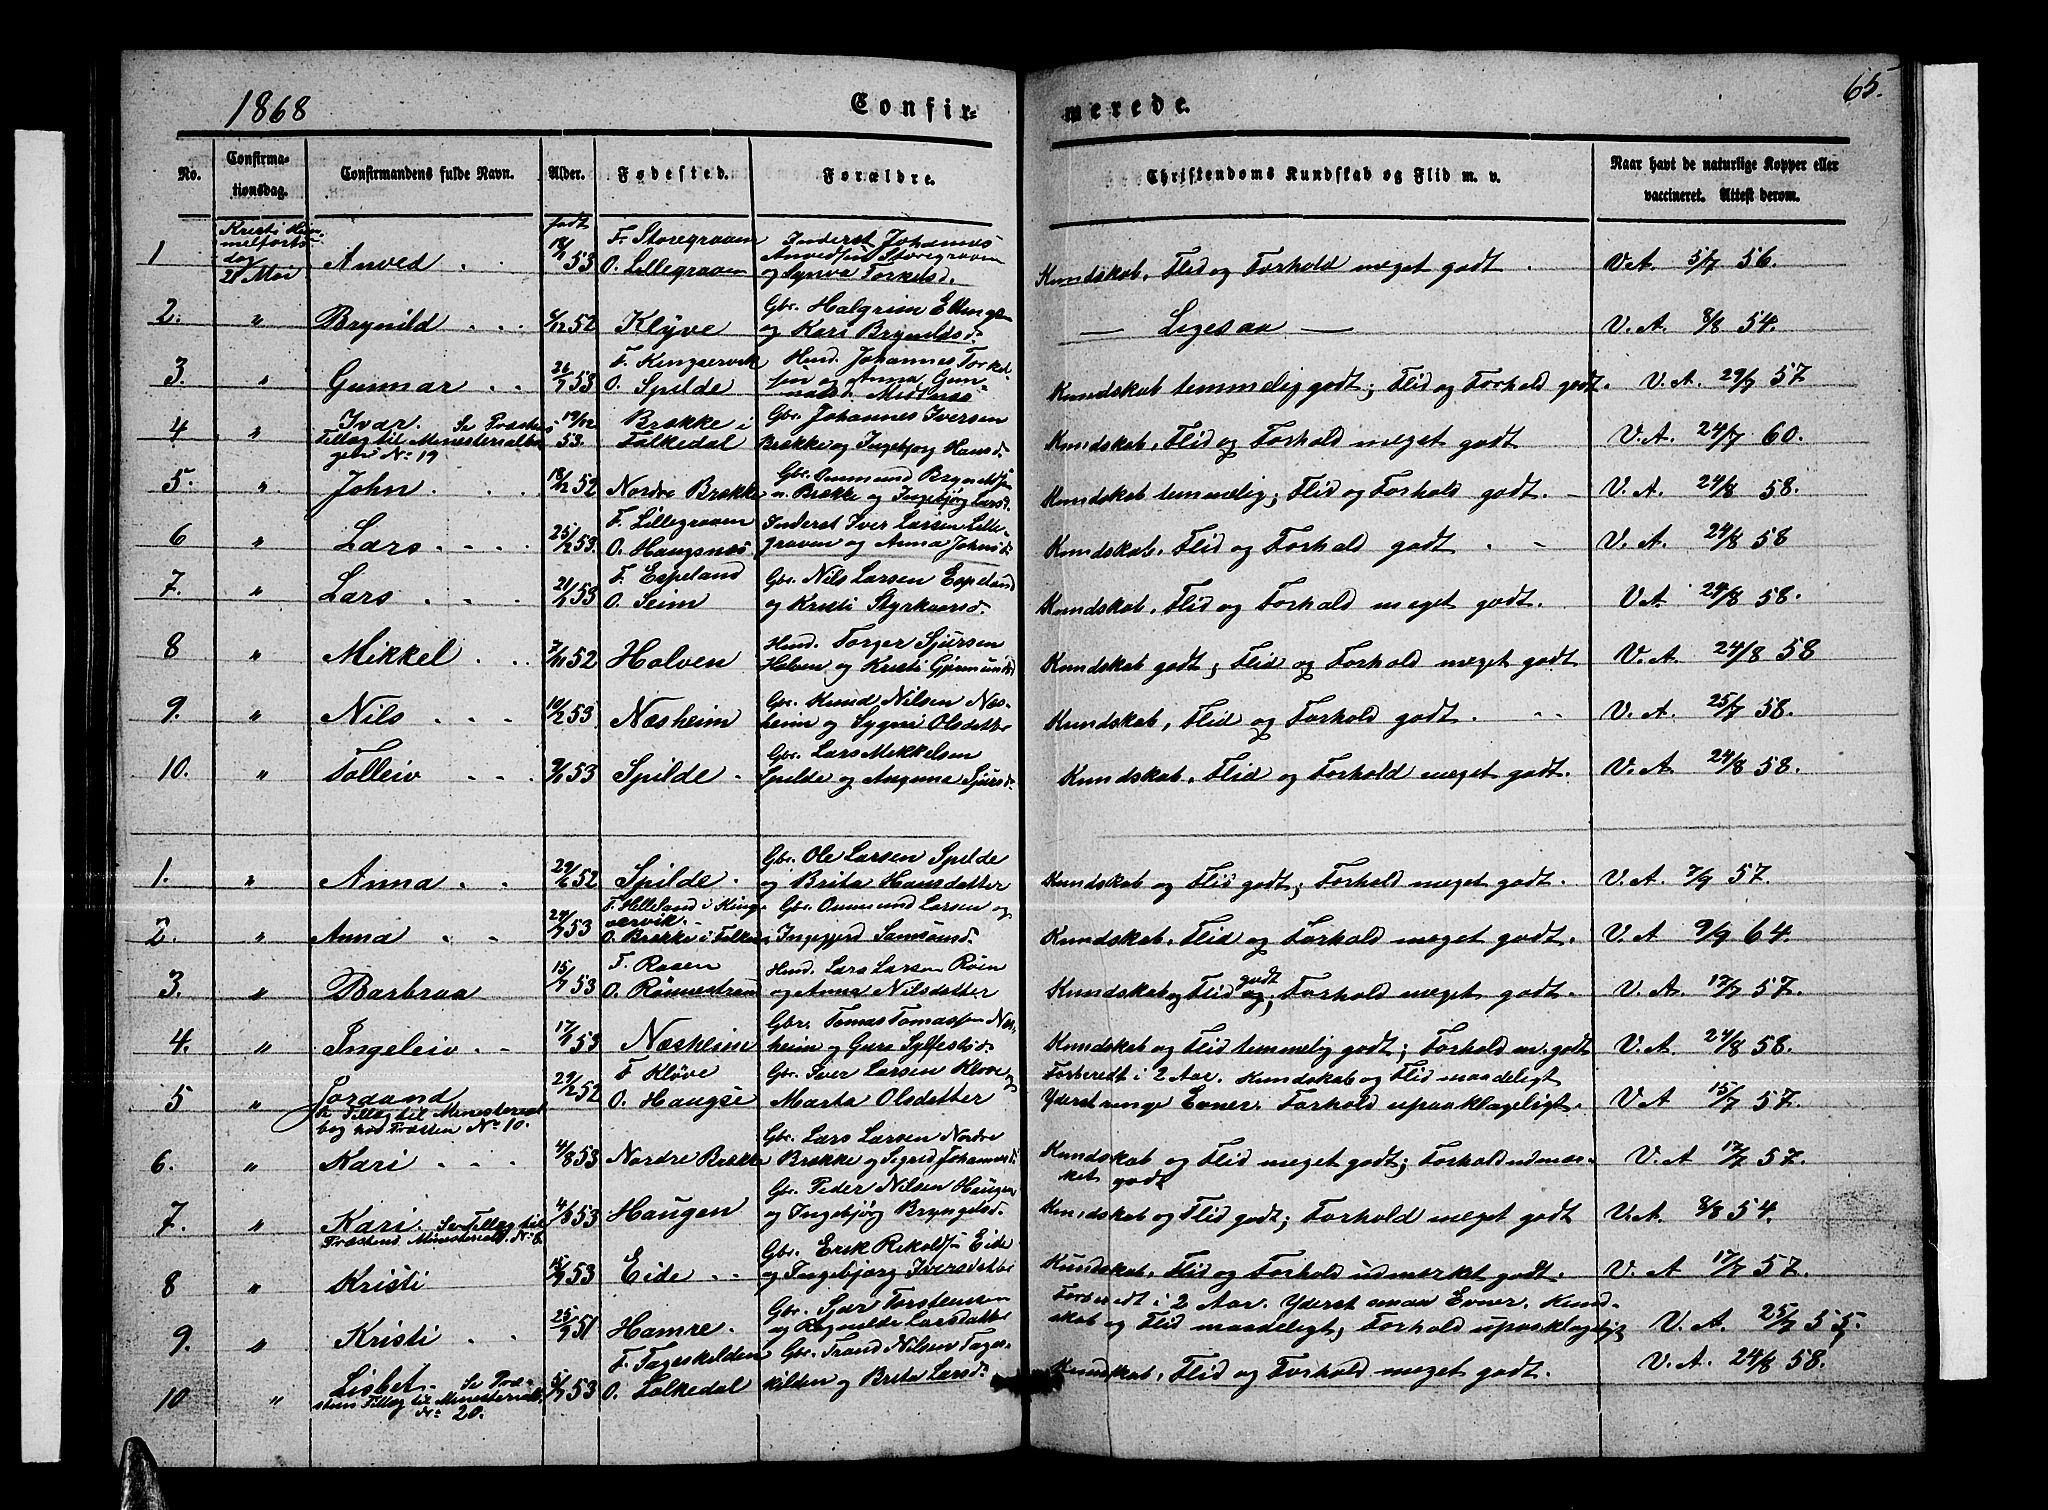 1868 Confir- merede. 65.
No. Confirma-tionsdag. Confirmandens fulde Navn. Alder. Fødested. Forældre. Christendoms Kundskab og Flid m. v. Naar havt de naturlige Kopper eller vaccineret. Attest derom.
født
1 Kristi Him-melfarts dag 21 Mai Anved 53 F. Storegraven O. Lillegraven Inderst Johannes Anvedsen Storegraven og Synva Torkelsd. Kundskab, Flid og Forhold meget godt V.A. 5/7 56.
2. " Brynild 52 Klyve Gbr. Halgrim Ellings- og Kari Bryndlsd. — Ligesaa — V. A. 8/8 54.
3. " Gunnar 26/7 53 F. Kingservik O. Spilde Hmd. Johannes Torkel-sen og Anna Gun-narsd. Midtnæs Kundskab temmelig godt; Flid og Forhold godt. V. A. 29/7 57
4 " Ivar. Se Præstens Tillæg til Ministerialbo-gen No 19 19/12 53. Brække i Folkedal Gbr. Johannes Iversen Brække og Ingebjorg Hansd. Kundskab, Flid og Forhold meget godt V. A. 24/7 60.
5. " John 18/12 52 Nordre Brække Gbr. Ommund Bryneldsen n. Brække og Ingebjørg Larsd. Kundskab temmelig; Flid og Forhold godt. V. A. 24/8 58.
6 " Lars 25/2 53. F. Lillegraven O. Haugsnæs Inderst Iver Larsen Lille-graven og Anna Johnsd. Kundskab, Flid og Forhold godt V. A. 24/8 58
7. " Lars 21/1 53 F. Espeland O. Seim Gbr. Nils Larsen Espeland og Kristi Styrkaarsd. Kundskab, Flid og Forhold meget godt. V. A. 24/8 58.
8 " Mikkel 7/11 52 Holven Hmd. Torger Sjursen Holven og Kristi Gjermundsd. Kundskab godt; Flid og Forhold meget godt V. A. 24/8 58
9. " Nils 10/2 53 Næsheim Gbr. Knud Nilsen Næs-heim og Sygni Olsdatter Kundskab, Flid og Forhold godt. V. A. 25/7 58.
10. " Tolleiv 9/1 53 Spilde Gbr. Lars Mekkelsen Spilde og Angunna Sjursd. Kundskab, Flid og Forhold meget godt. V. A. 24/8 58.
1. " Anna 29/6 52 Spilde. Gbr. Ole Larsen Spilde og Brita Hansdatter Kundskab og Flid godt; Forhold meget godt. V. A. 7/9 57.
2. " Anna 53 F. Helleland i Kings-servik. O. Brække i Folked. Gbr. Ommund Larsen og Ingegjerd Samsonsd. Kundskab, Flid og Forhold meget godt. V. A 9/9 64.
3. " Barbraa 15/7 53 F. Raaen O. Rönnestrand Hmd. Lars Larsen Röen og Anna Nilsdatter Kundskab og Flid godt; Forhold meget godt. V. A. 17/7 57.
4. " Ingeleiv 53 Næsheim Gbr. Tomas Tomassen Næs-heim og Guro Sylfestsd. Kundskab og Flid temmelig godt; Forhold m. godt V. A. 24/8 58.
5 " Jordand Se Tillæg til Ministerial-bog hos Præsten No 10. 29/12 52 F. Kløve O. Haugse Gbr. Iver Larsen Kløve og Marta Olsdatter Forberedt i 2 Aar. Kundskab og Flid maadeligt Yderst ringe Evner. Forhold upaaklageligt. V. A 15/7 57.
6. " Kari 4/8 53 Nordre Brække Gbr. Lars Larsen Nordre Brække og Sigrid Johannesd. Kundskab og Flid meget godt; Forhold udmær-ket godt V. A 17/7 57.
7. " Kari. Se Tillæg til Præstens Ministerialb. No 8. 53 Haugen Gbr. Peder Nilsen Haugen og Ingebjörg Bryngelsd. Kundskab og Flid godt; Forhold meget godt V. A. 8/8 54.
8 " Kristi 53 Eide Gbr. Erik Rikoldsen Eide og Ingebjorg Iversdatter Kundskab, Flid og Forhold udmærket godt. V. A 17/7 57.
9. " Kristi 25/7 51 Hamre. Gbr. Sjur Torstensen og Ragnilde Larsdatter Forberedt i 2 Aar. Yderst smaa Evner. Kund-skab og Flid maadeligt; Forhold upaaklageligt V. A. 25/7 55.
10 " Lisbet. Se Præ-stens Tillæg til Ministerialb. No 20. 5/7 53 F. Tageskilden O. Folkedal Gbr. Trond Nilsen Tages-kilden og Brita Larsd. Kundskab, Flid og Forhold meget godt. V. A. 24/8 58.